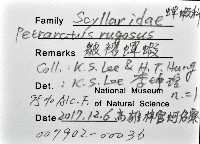 蟬蝦科
Family Scyllaridae
Petrarctus rugosus
Remarks 皺襟蟬蝦
Coll.: K.S. Lee & H.T. Hung
Det.: K.S. Lee 李
National Museum n.=1
75% Alc. F. of Natural Science
Date 2017.12.6 高雄
007902-00036